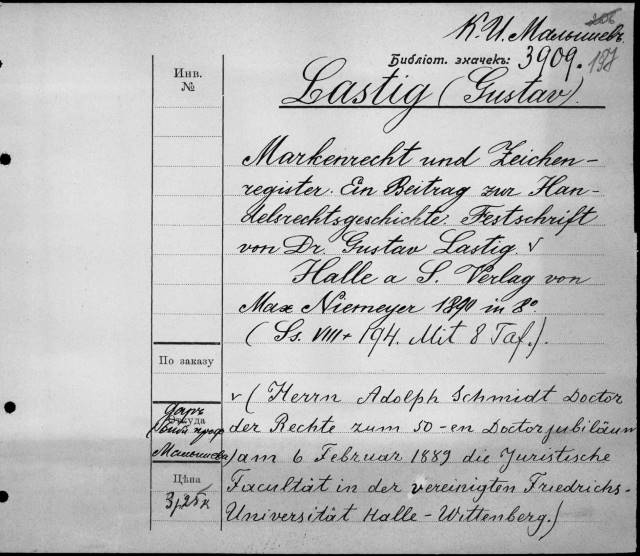 К. И. Малышевъ.
Библіот. значекъ: 3909.
Инв.
№
Lastig (Gustav).
Markenrecht und Zeichen-
register. Ein Beitrag zur Han-
delsrechtsgeschichte. Festschrift
von Dr. Gustav Lastig. √
Halle a S. Verlag von
Max Niemeyer 1890 in 8º
(Ss. VIII + 194. Mit 8 Taf.).
По заказу
√ (Herrn Adolph Schmidt Doctor
der Rechte zum 50-en Doctorjubiläum
am 6 Februar 1889 die Juristische
Facultät in der vereinigten Friedrichs-
Universität Halle-Wittenberg.)
Даръ
Откуда
Малышева)
Цѣна
3р25к